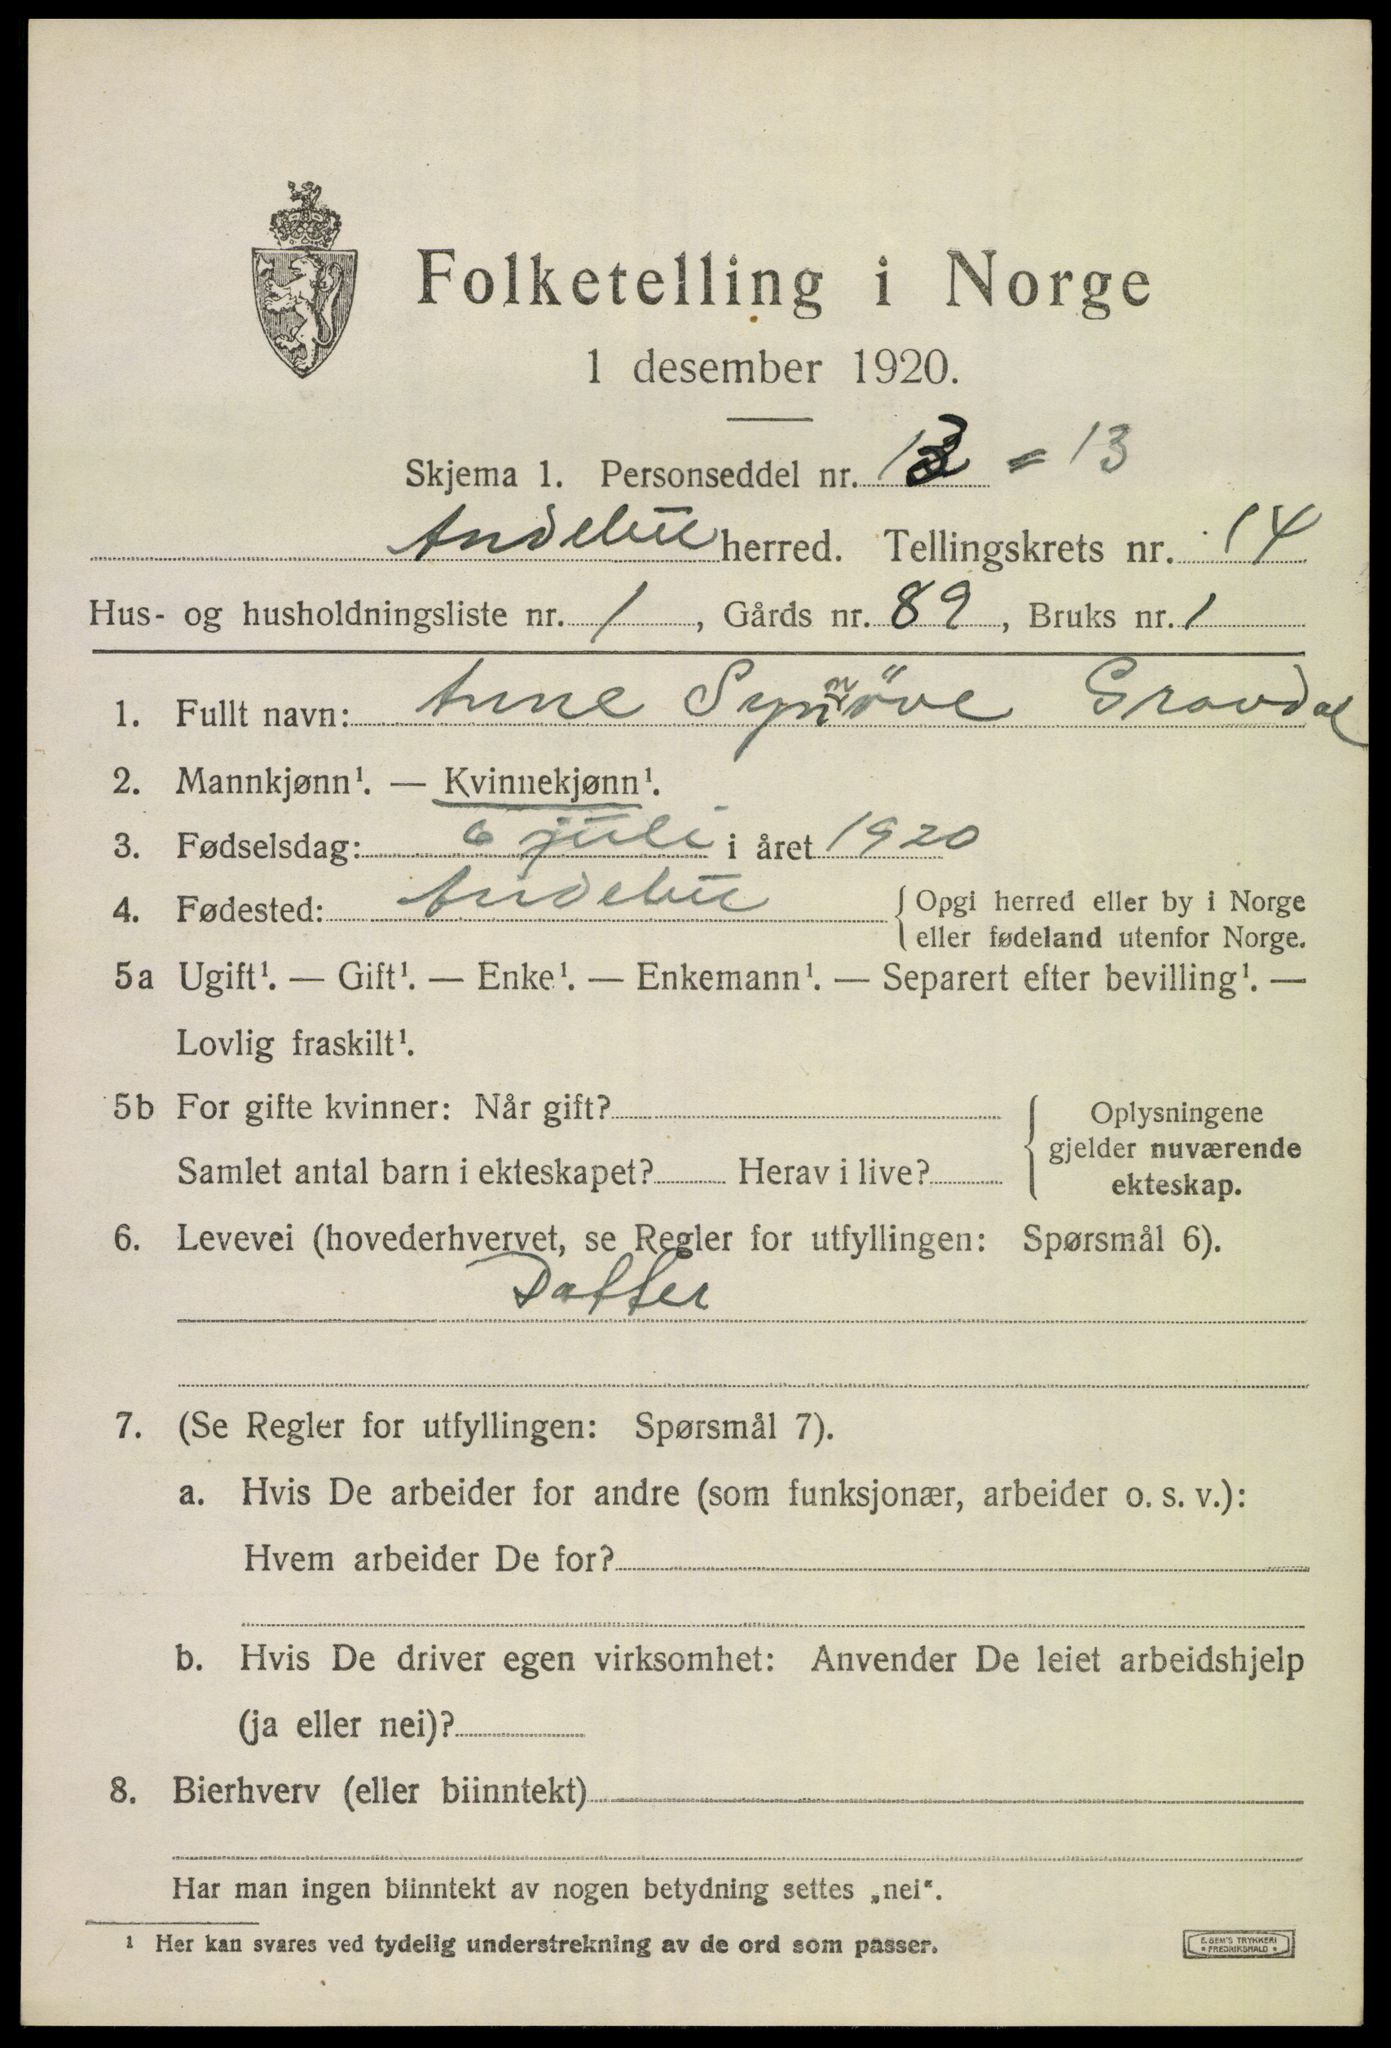 Folketelling i Norge
1 desember 1920.
Skjema 1. Personseddel nr. 13 = 13
Andebu herred. Tellingskrets nr. 14
Hus- og husholdningsliste nr. 1, Gårds nr. 89, Bruks nr. 1
1. Fullt navn: Anne Synnöve Gravdal
2. Mannkjønn¹. — Kvinnekjønn¹.
3. Fødselsdag: 6 juli i året 1920
4. Fødested: Andebu { Opgi herred eller by i Norge
eller fødeland utenfor Norge.
5a Ugift¹. — Gift¹. — Enke¹. — Enkemann¹. — Separert efter bevilling¹. —
Lovlig fraskilt¹.
5b For gifte kvinner: Når gift?
Samlet antal barn i ekteskapet? Herav i live?
Oplysningene
gjelder nuværende
ekteskap.
6. Levevei (hovederhvervet, se Regler for utfyllingen: Spørsmål 6).
Datter
7. (Se Regler for utfyllingen: Spørsmål 7).
a. Hvis De arbeider for andre (som funksjonær, arbeider o. s. v.):
Hvem arbeider De for?
b. Hvis De driver egen virksomhet: Anvender De leiet arbeidshjelp
(ja eller nei)?
8. Bierhverv (eller biinntekt)
Har man ingen biinntekt av nogen betydning settes „nei“.
¹ Her kan svares ved tydelig understrekning av de ord som passer.
E. SEM'S TRYKKERI
* FREDRIKSHALD *